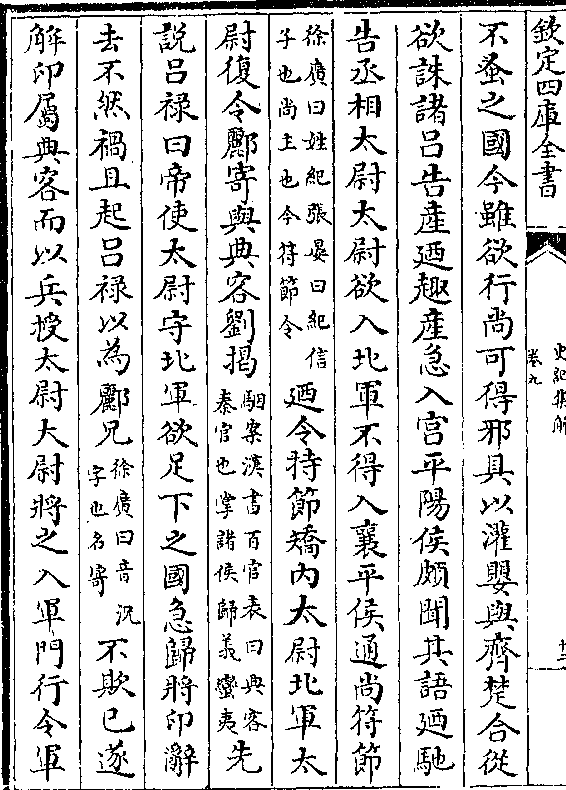 欽定四庫全書
史記集解
卷九
十三
不蚤之國今雖欲行尚可得邪具以灌嬰與齊楚合從
欲誅諸呂告產廼趣產急入宫平陽侯頗聞其語廼馳
告丞相太尉太尉欲入北軍不得入襄平侯通尚符節
徐廣曰姓紀張晏曰紀信
子也尚主也今符節令
廼令持節矯内太尉北軍太
尉復令酈寄與典客劉揭
駰案漢書百官表曰典客
秦官也掌諸侯歸義蠻夷
先
說呂禄曰帝使太尉守北軍欲足下之國急歸將印辭
去不然禍且起呂禄以為酈兄
徐廣曰音况
字也名寄
不欺已遂
解印屬典客而以兵授太尉太尉將之入軍門行令軍